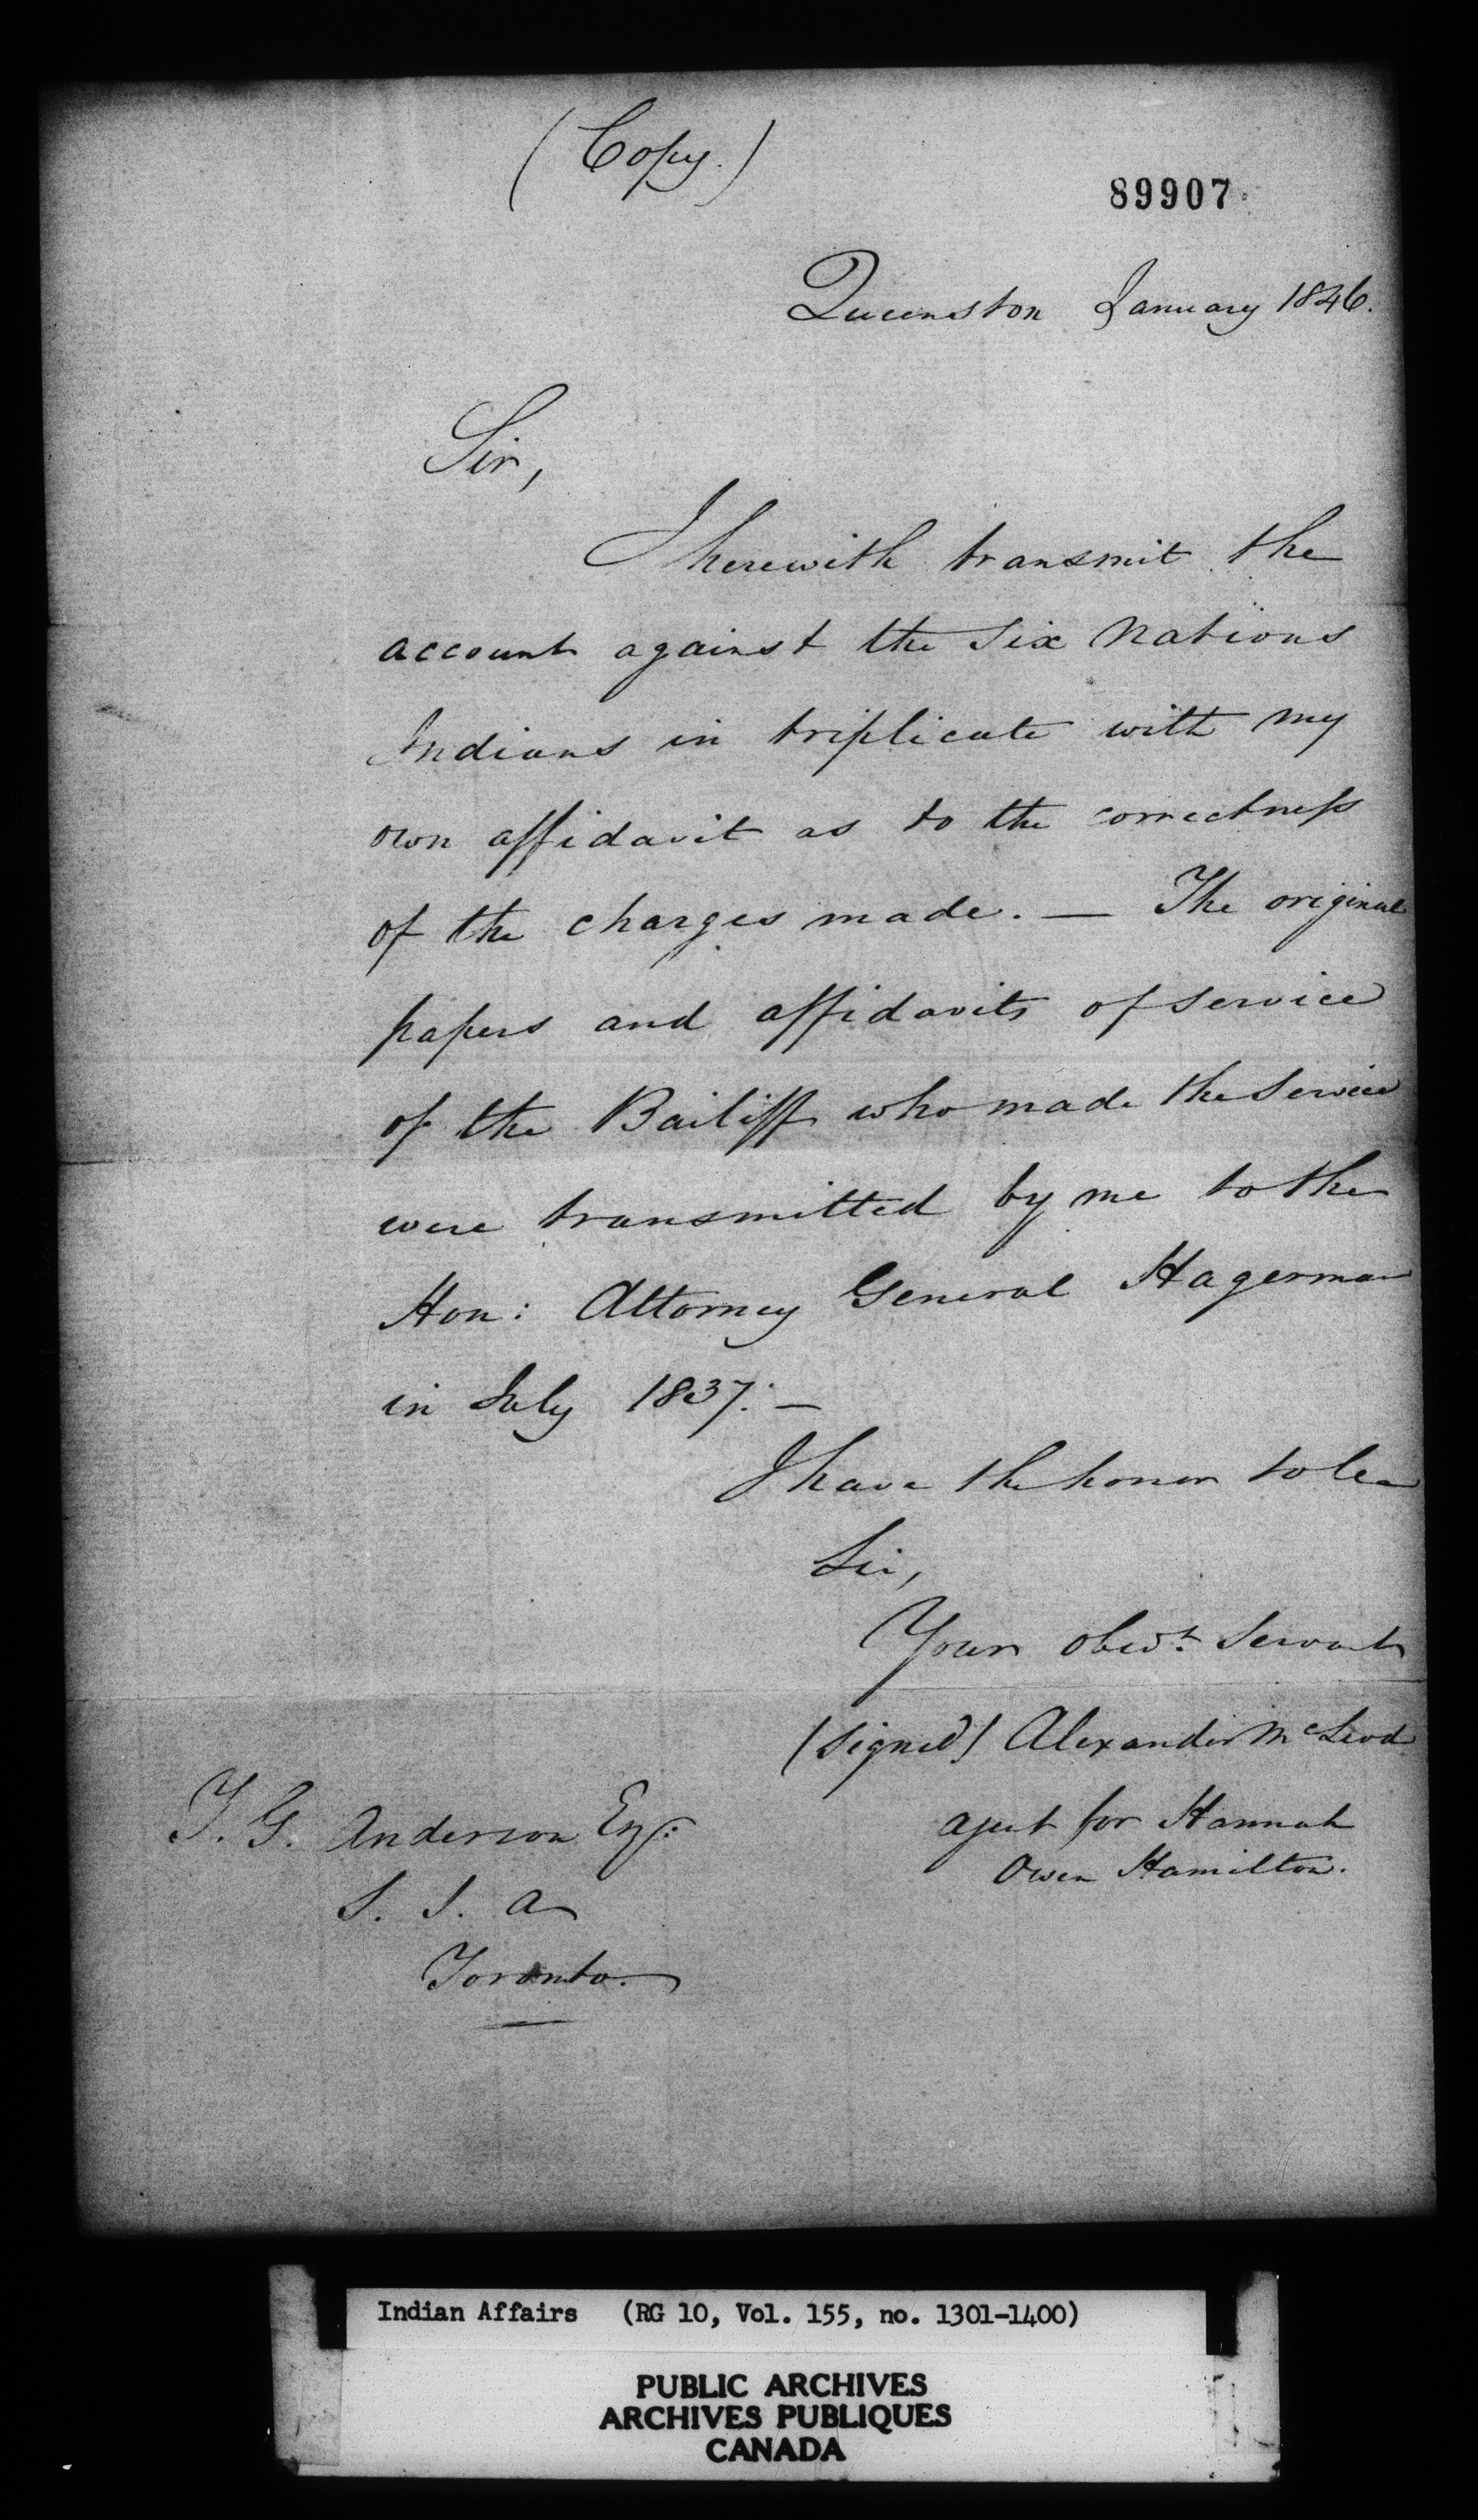 (Copy.)
89907
Queenston January 1846.
Sir,
I herewith transmit the
account against the Six Nations
Indians in triplicate with my
own affidavit as to the correctness
of the charges made. — The original
papers and affidavits of service
of the Bailiff who made the Service
were transmitted by me to the
Hon: Attorney General Hagerman
in July 1837. —
I have the honor to be
Sir,
Your obedt. Servant
(Signed) Alexander McLeod
agent for Hannah
Owen Hamilton.
T. G. Anderson Esq:
S. I. A
Toronto.
Indian Affairs (RG 10, Vol. 155, no. 1301-1400)
PUBLIC ARCHIVES
ARCHIVES PUBLIQUES
CANADA